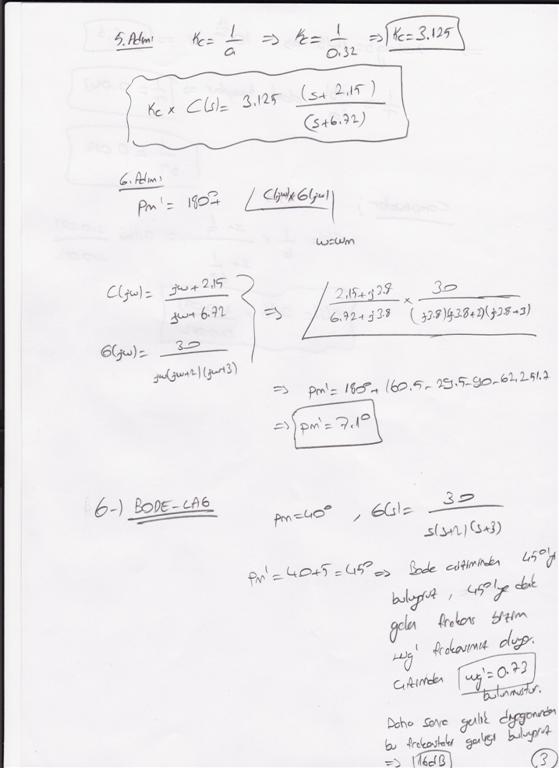 5. Adım: Kc = 1/a => Kc = 1/0.32 => Kc = 3.125
Kc x C(s) = 3.125 (s + 2.15)/(s + 6.72)
6. Adım:
Pm' = 180° + ∠C(jw) x G(jw)
w = wm
C(jw) = (jw + 2.15)/(jw + 6.72)
G(jw) = 30/(jw(jw+2)(jw+3))
=> ∠ (2.15 + j3.8)/(6.72 + j3.8) x 30/((j3.8)(j3.8+2)(j3.8+3))
=> Pm' = 180° + (60.5 - 29.5 - 90 - 62.2 51.7
=> Pm' = 7.1°
6-) BODE-LAG Pm = 40°, G(s) = 30/(s(s+2)(s+3))
Pm' = 40 + 5 = 45° => Bode çiziminden 45°'yi
buluyoruz, 45°'ye denk
gelen frekans bizim
wg' frekansımız oluyor.
Çizimden wg' = 0.73
bulunmuştur.
Daha sonra genlik diyagramından
bu frekanstaki genliği buluyoruz
=> 16dB
3